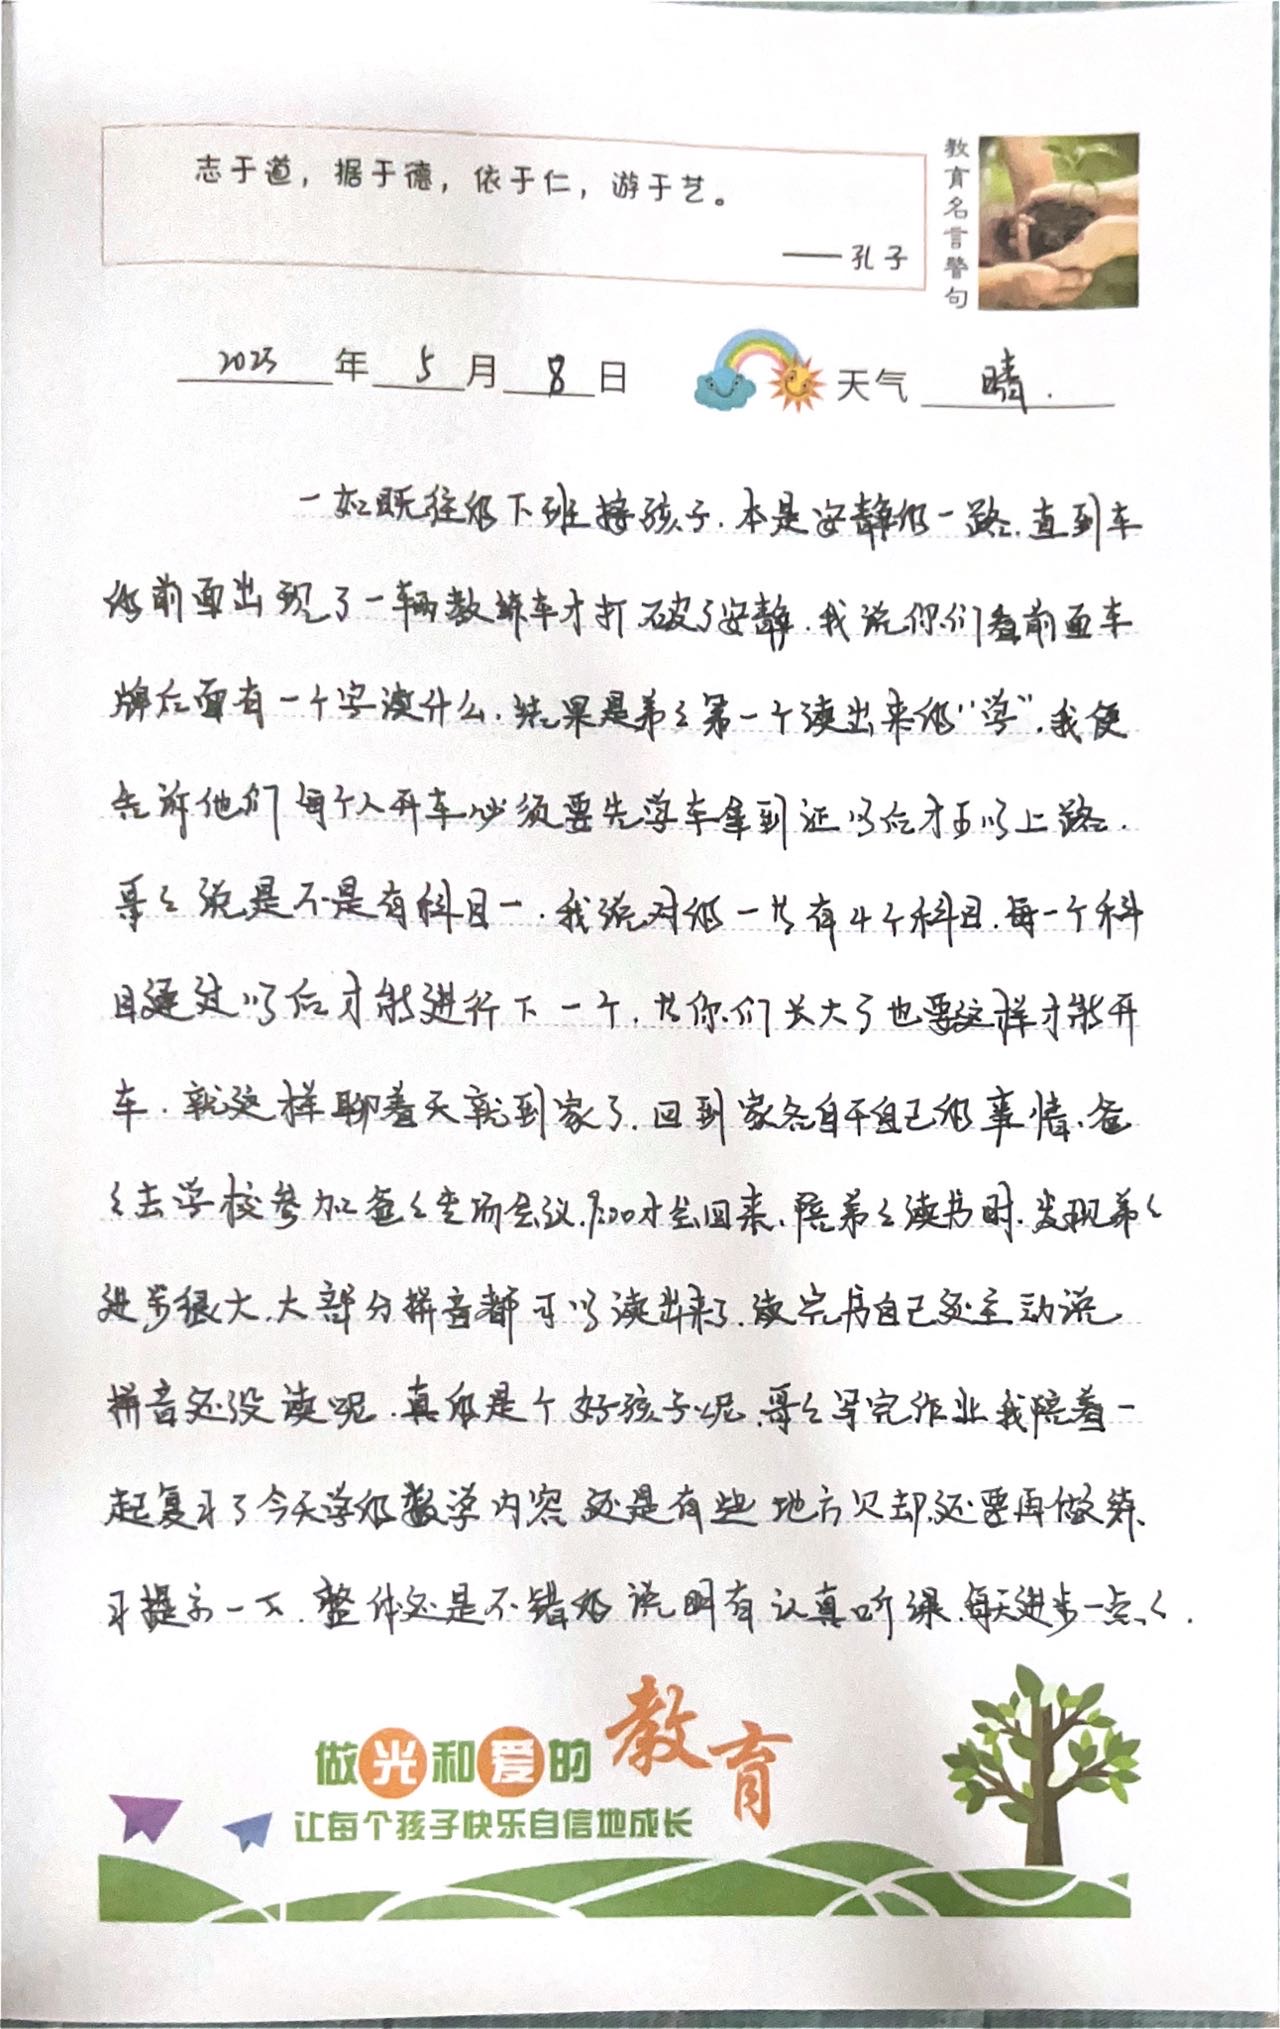 志于道，据于德，依于仁，游于艺。
——孔子
教育名言警句
2025年5月8日 天气 晴.
一如既往的下班接孩子.本是安静的一路.直到车
的前面出现了一辆教练车才打破了安静.我说你们看前面车
牌后面有一个字读什么.结果是弟弟第一个读出来的“学”.我便
告诉他们每个人开车必须要先学车拿到证以后才可以上路.
哥哥说是不是有科目一.我说对的一共有4个科目.每一个科
目通过以后才能进行下一个.等你们长大了也要这样才能开
车.就这样聊着天就到家了.回到家各自干自己的事情.爸
爸去学校参加爸爸专场会议.才会回来.陪弟弟读书时.发现弟弟
进步很大.大部分拼音都可以读出来了.读完书自己还主动说
拼音还没读呢.真的是个好孩子呢.哥哥写完作业我陪着一
起复习了今天学的数学内容还是有些地方欠却.还要再做练
习提示一下.整体还是不错的说明有认真听课.每天进步一点点.
做光和爱的教育
让每个孩子快乐自信地成长